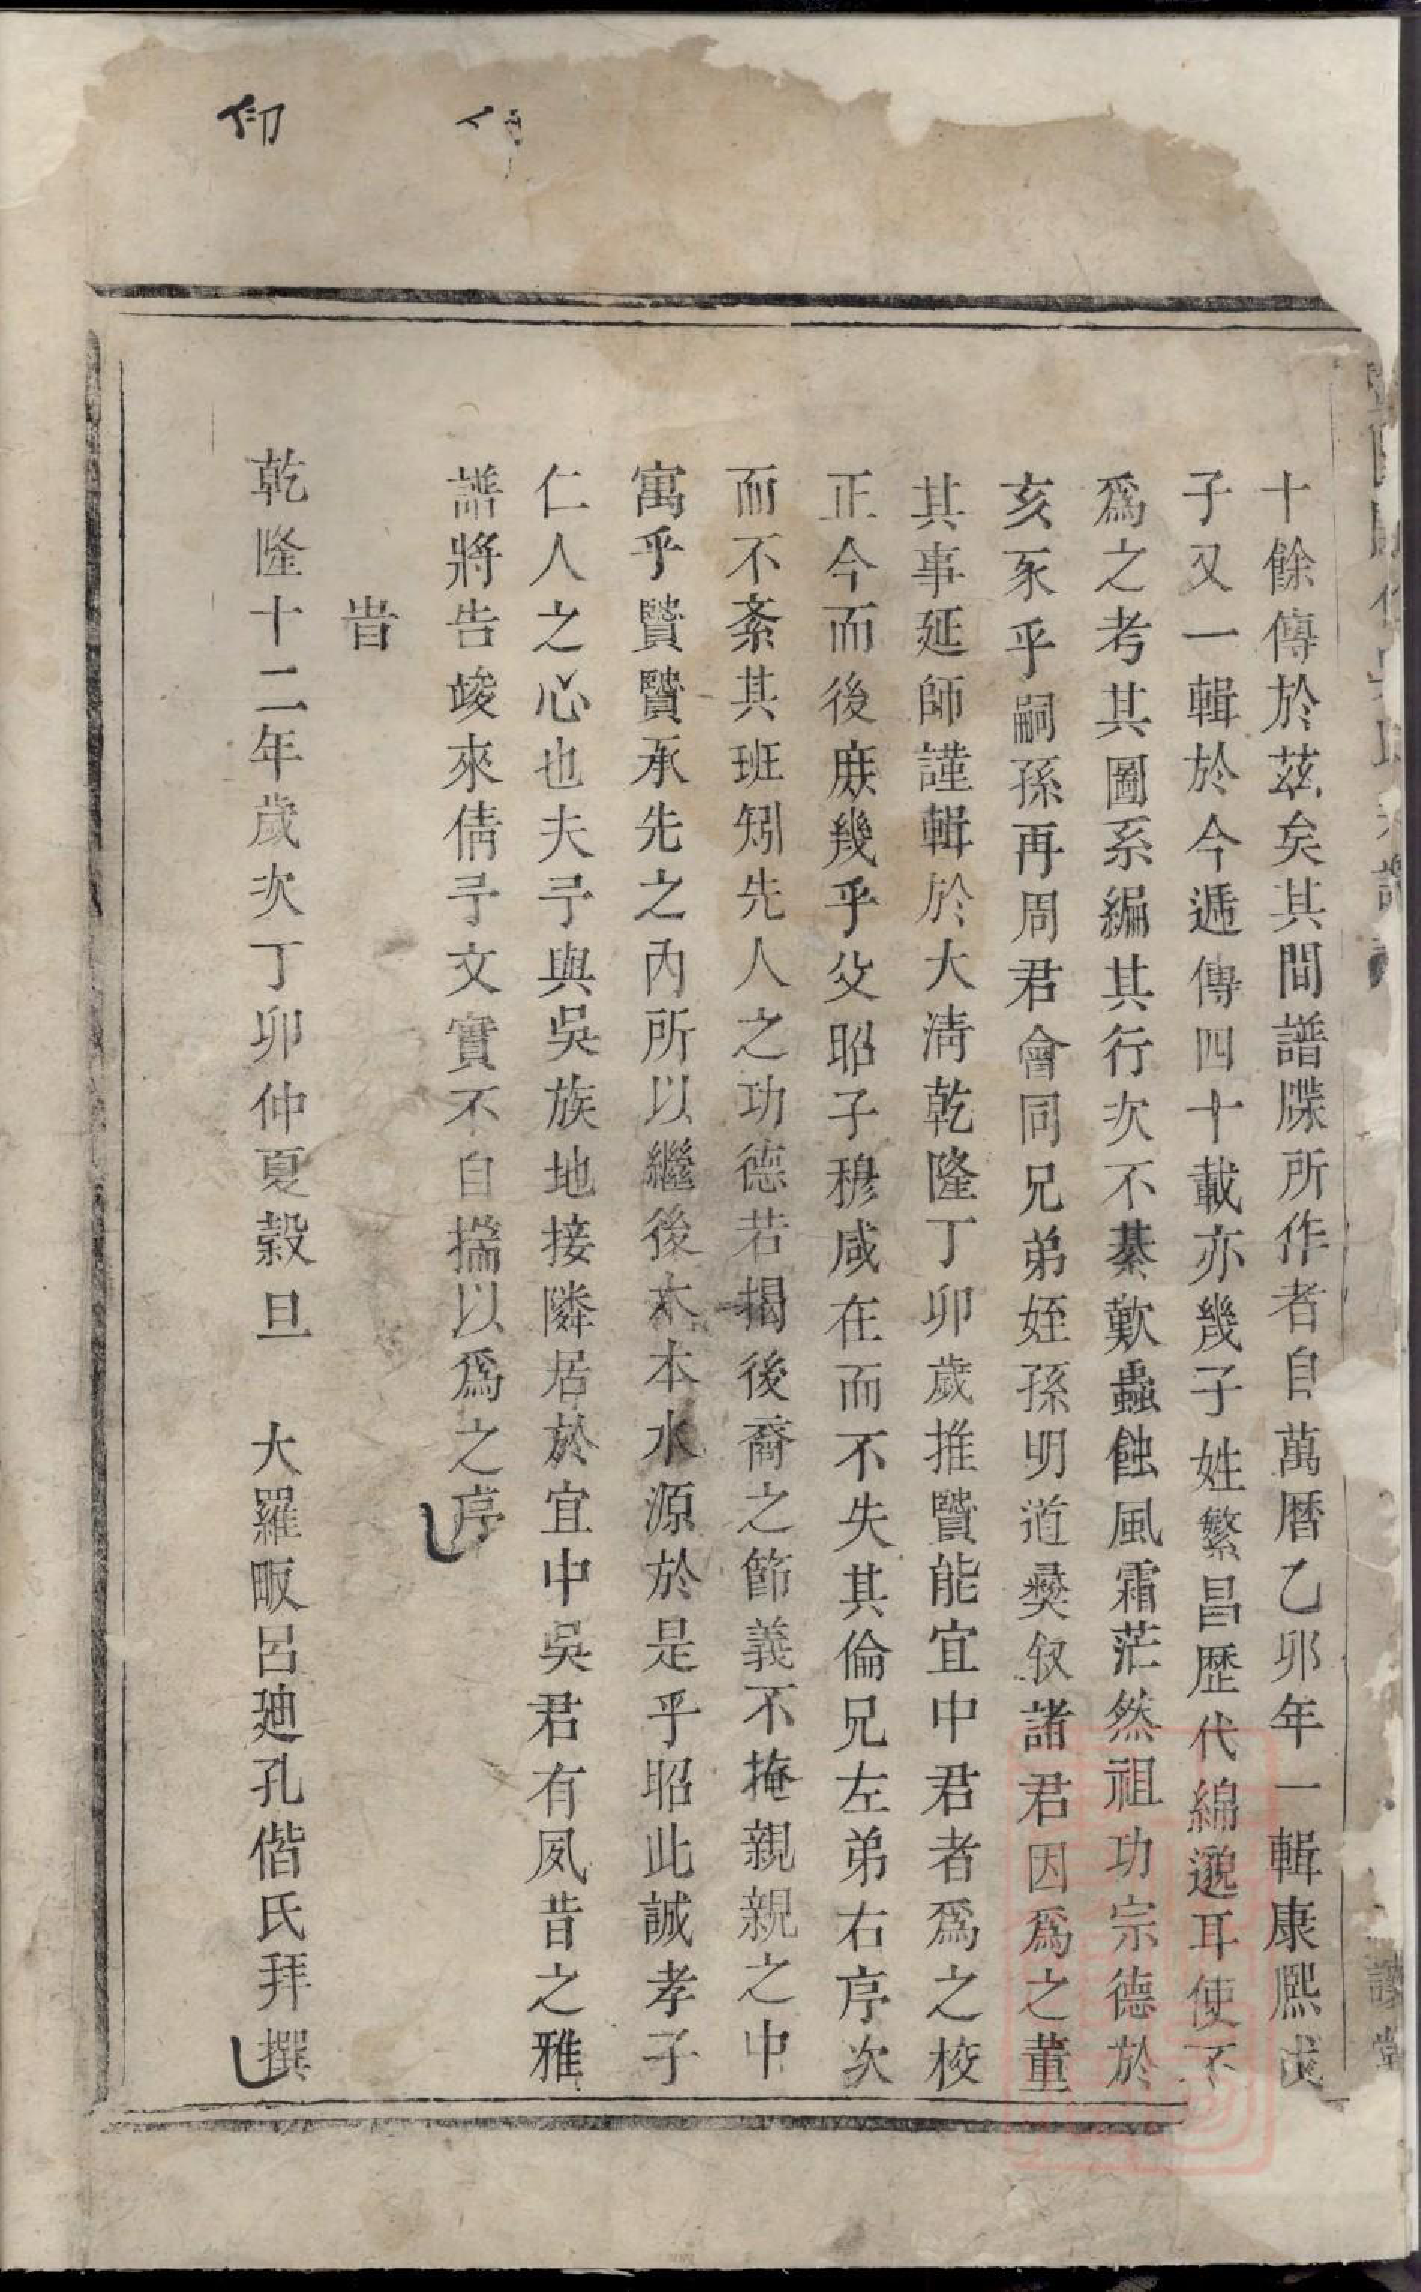 十餘傳於茲矣其間譜牒所作者自萬曆乙卯年一輯康熙戊
子又一輯於今遞傳四十載亦幾子姓繁昌歷代綿邈耳使不
爲之考其圖系編其行次不綦歎蟲蝕風霜茫然祖功宗德於
亥豕乎嗣孫再周君會同兄弟姪孫明道奬叙諸君因爲之董
其事延師謹輯於大淸乾隆丁卯歲推賢能宜中君者爲之校
正今而後庻幾乎父昭子穆咸在而不失其倫兄左弟右序次
而不紊其班矧先人之功德若揭後裔之節義不掩親親之中
寓乎賢賢承先之內所以繼後木本水源於是乎昭此誠孝子
仁人之心也夫予與吳族地接隣居於宜中吳君有夙昔之雅
譜將告竣來倩予文實不自揣以爲之序
旹
乾隆十二年歲次丁卯仲夏榖旦　大羅畈呂廸孔偕氏拜撰
仰